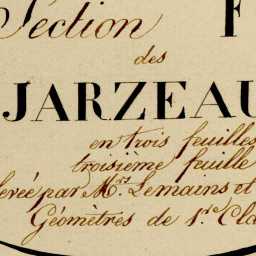 Section F
des
JARZEAU
en trois feuilles
troisième feuille
levée par M.rs Lemains et
Géomètres de 1.re Cla